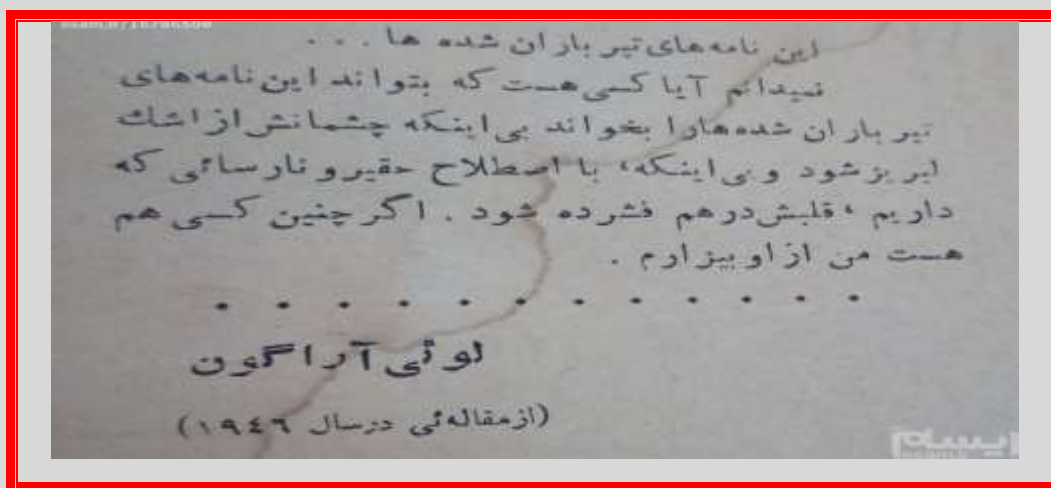 این نامه‌های تیر باران شده ها . . .
نمیدانم آیا کسی هست که بتواند این نامه‌های
تیر باران شده‌هارا بخواند بی‌اینکه چشمانش از اشك
لبریز شود و بی‌اینکه، با اصطلاح حقیر و نارسائی که
داریم، قلبش درهم فشرده شود . اگر چنین کسی هم
هست من از او بیزارم .
. . . . . . . . . . . .
لوئی آراگون
(از مقاله‌ئی در سال ۱۹٤٦)
ایسام
esam.ir